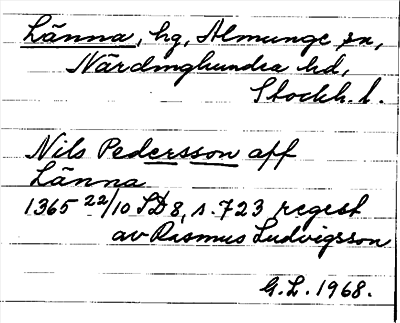 Länna, hg, Almunge sn,
Närdinghundra hd,
Stockh. l.
Nils Pedersson aff
Länna
1365 22/10 SD 8, s. 723 regest
av Rasmus Ludvigsson
G.L. 1968.